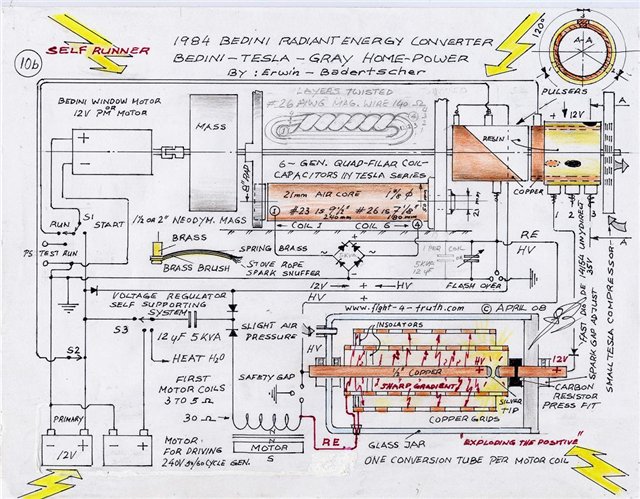 1984 BEDINI RADIANT ENERGY CONVERTER
SELF RUNNER
BEDINI-TESLA-GRAY HOME-POWER
By: Erwin - Badertscher
10b
120°
A-A
PULSERS
LAYERS TWISTED
#26 AWG MAG. WIRE 140 Ω
BEDINI WINDOW MOTOR
OR
12V PM MOTOR
MASS
RESIN
12V
A
6-GEN. QUAD-FILAR COIL-
CAPACITORS IN TESLA SERIES
COPPER
8" PAD
21mm AIR CORE 1 5/8 Φ
#23 IS 9 1/2" #26 IS 7 1/8"
240mm 180mm
21 mm
1 2 3
S1
RUN
START
P.S. TEST RUN
1 1/2 OR 2" NEODYM. MAGS
COIL 1
COIL 6
A
BRASS
SPRING BRASS
STOVE ROPE
SPARK SNUFFER
BRASS BRUSH
1 PER COIL
OR
5KVA
12µF
RE
HV
12V
HV
FLASH OVER
HV
VOLTAGE REGULATOR
SELF SUPPORTING
SYSTEM
www.fight-4-truth.com
© APRIL 08
S3
12µF 5KVA
SLIGHT AIR
PRESSURE
INSOLATORS
HV
SPARK GAP ADJUST
SMALL TESLA COMPRESSOR
S2
HEAT H2O
1/2" COPPER
HV
12V
SHARP GRADIENT
SAFETY GAP
SILVER
TIP
CARBON
RESISTOR
PRESS FIT
FIRST
MOTOR COILS
3 TO 5 Ω
30 Ω
COPPER GRIDS
PRIMARY
12V
MOTOR
FOR DRIVING
240V 50/60 CYCLE GEN.
N
MOTOR
S
RE
GLASS JAR
"EXPLODING THE POSITIVE"
ONE CONVERSION TUBE PER MOTOR COIL